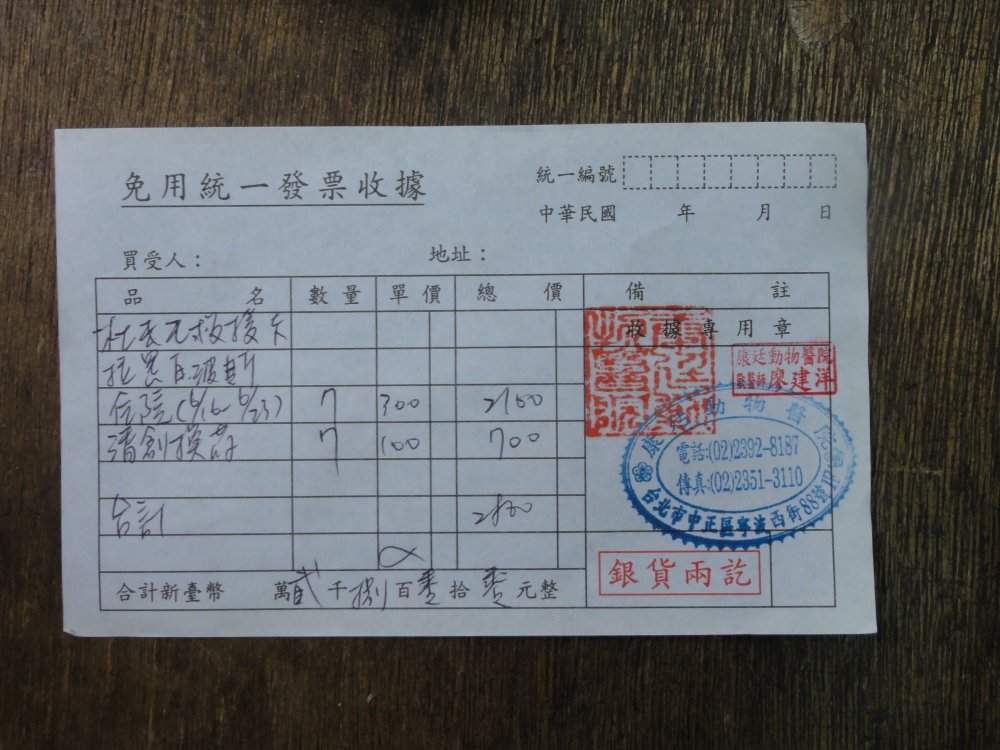 免用統一發票收據
統一編號
中華民國 年 月 日
買受人：
地址：
品 名 數量 單價 總 價 備 註
收據專用章
住院(6/16-6/23) 7 300 2100
清創換葯 7 100 700
合計 2800
合計新臺幣 萬貳千捌百零拾零元整
康廷動物醫院
獸醫師 廖建洋
動物醫院
電話:(02)2392-8187
傳真:(02)2351-3110
台北市中正區寧波西街88號
銀貨兩訖